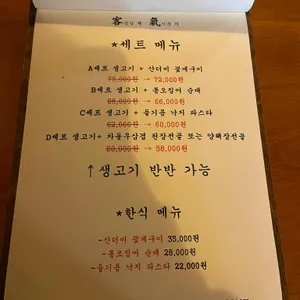 客손님 객 氣기운 기
*세트 메뉴
A세트 생고기 + 산더미 꽃게구이
75,000원 → 72,000원
B세트 생고기 + 통오징어 순대
68,000원 → 66,000원
C세트 생고기 + 들기름 낙지 파스타
62,000원 → 60,000원
D세트 생고기+ 차돌우삼겹 된장전골 또는 양해장전골
60,000원 → 58,000원
↑생고기 반반 가능
*한식 메뉴
-산더미 꽃게구이 35,000원
-통오징어 순대 28,000원
-들기름 낙지 파스타 22,000원